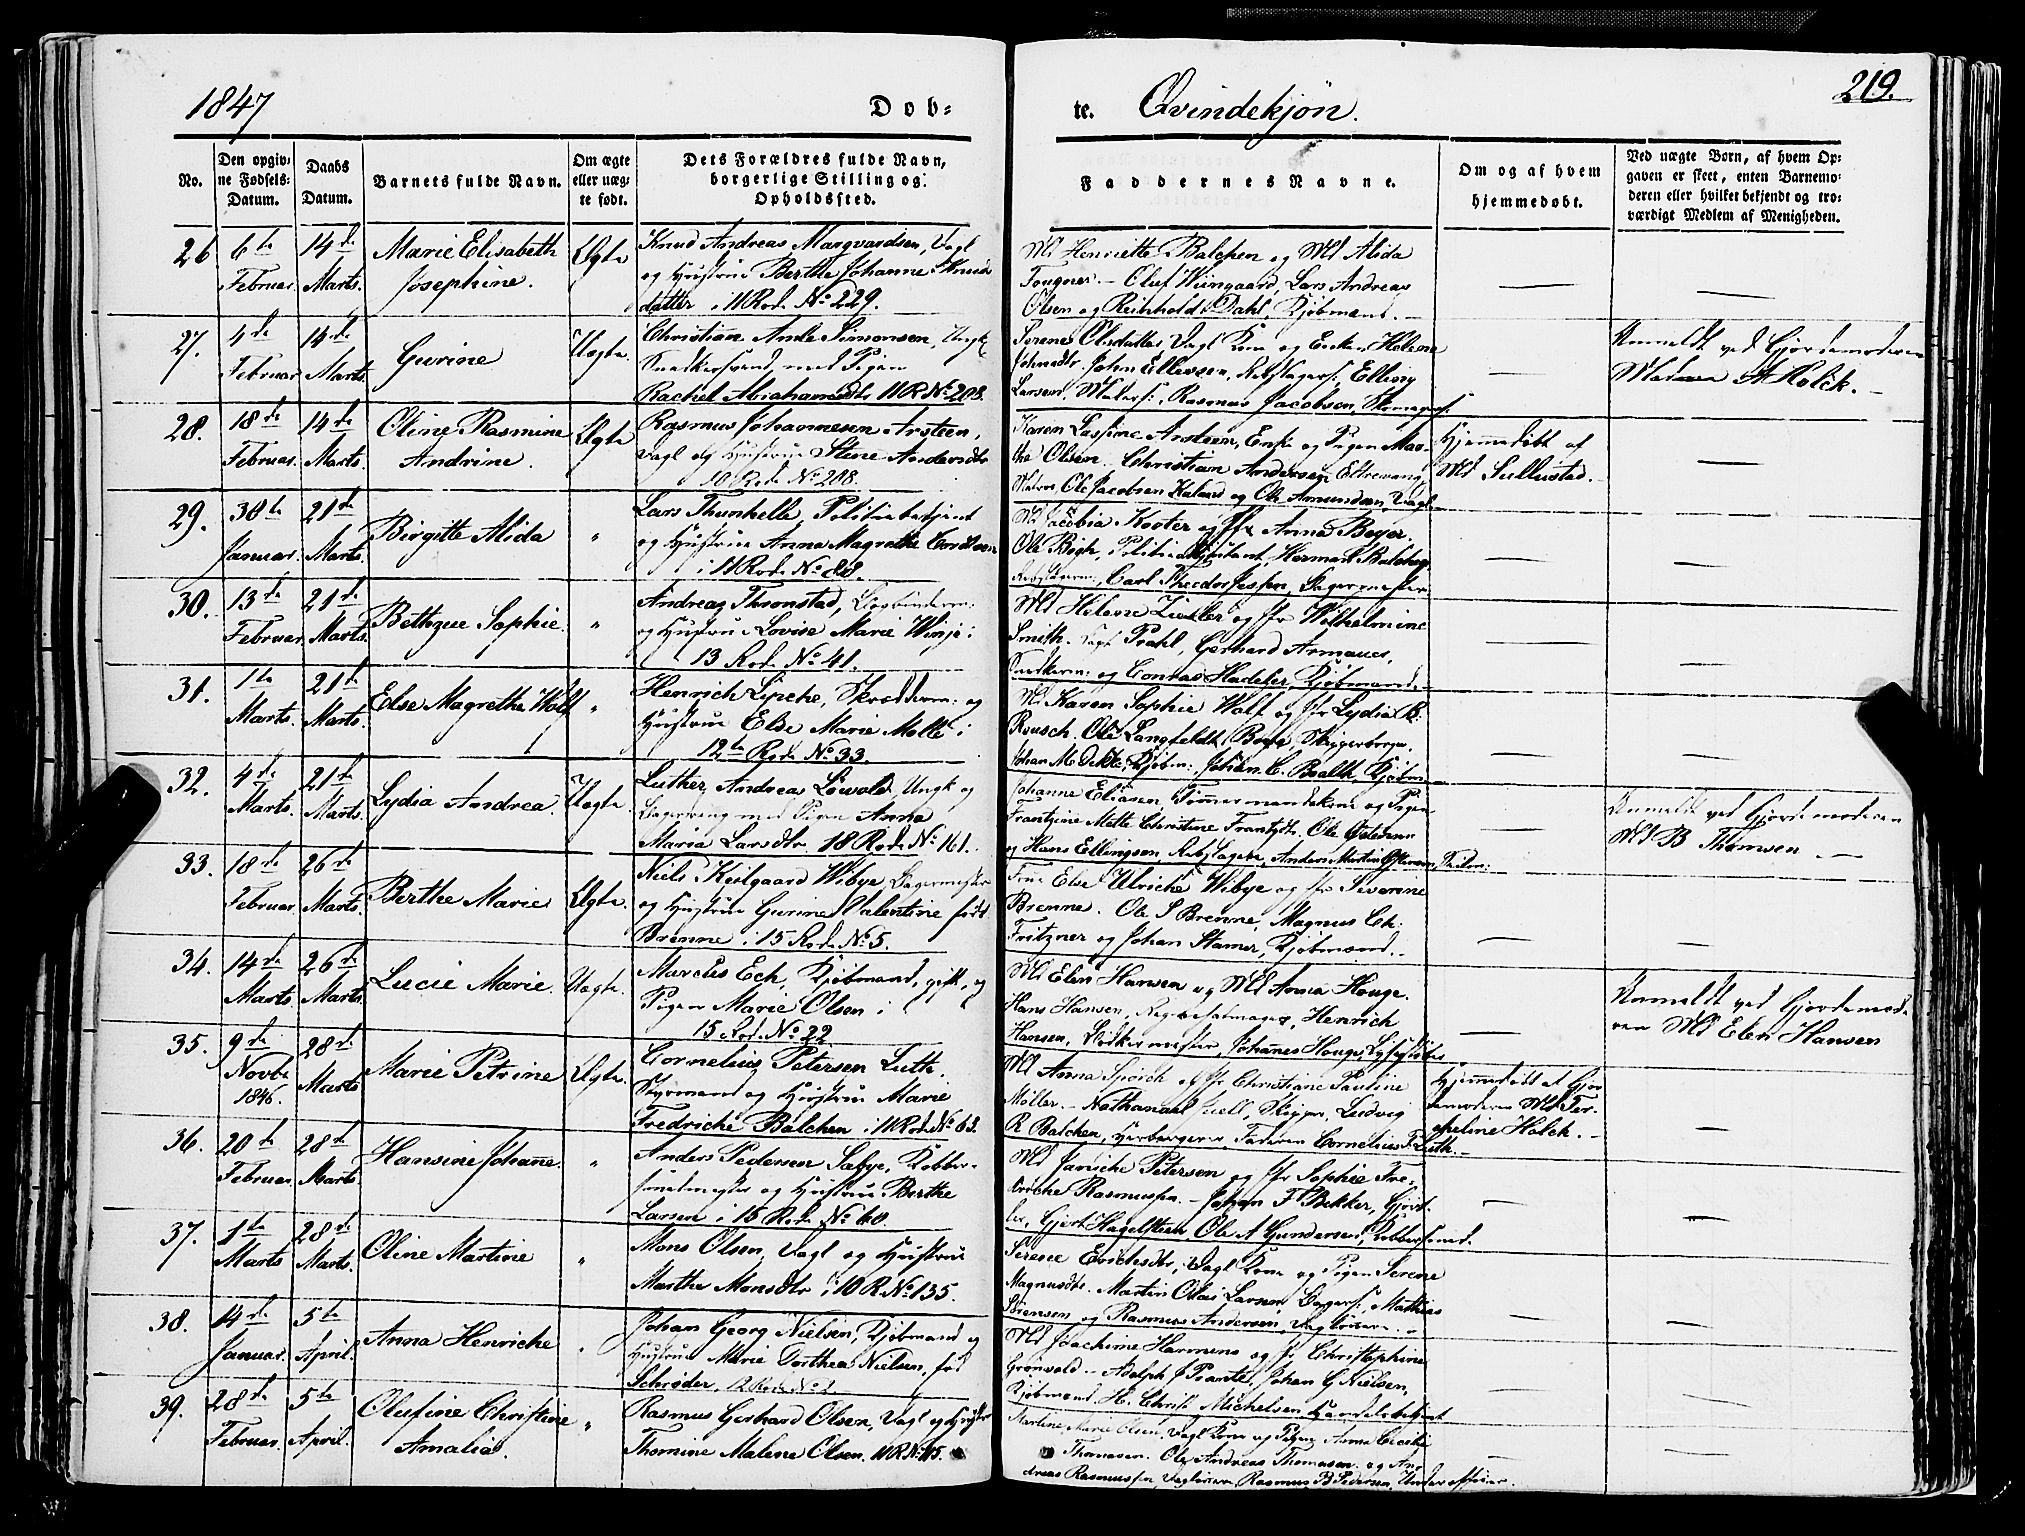 1847
Døb=
te. Qvindekjön.
219.
No.
Den opgiv=
ne Fødsels=
Datum.
Daabs
Datum.
Barnets fulde Navn.
Om ægte
eller uæg=
te født.
Dets Forældres fulde Navn,
borgerlige Stilling og
Opholdssted.
Faddernes Navne.
Om og af hvem
hjemmedøbt.
Ved uægte Børn, af hvem Op=
gaven er skeet, enten Barnemo=
deren eller hvilket bekjendt og tro=
værdigt Medlem af Menigheden.
26 6te Februar. 14de Marts.
Marie Elisabeth
Josephine.
Ægte
Knud Andreas Marqvardsen, Dagl
og Hustrue Berthe Johanne Knuds
datter i 11 Rode No 229.
Md Henriette Balchen og Md Alida
Fougner. – Oluf Wiingaard, Lars Andreas
Olsen og Reinhold Dahl, Kjøbmænd. –
27. 4de Februar 14de Marts.
Gurine
Uægte.
Christian Andr Simonsen, Ungk
Snedkersvend, med Pigen
Rachel Abrahamsdtr 11 R No 208.
Serene Olsdatter Dagl Kone og Enken Helene
Johnsdtr. John Ellevsen, Rebslagers., Elling
Larsen, Malers., Rasmus Jacobsen, Skomagers.
Anmeldt ved Gjordemoderen
Madame A Holck. –
28. 18de Februar. 14de Marts.
Oline Rasmine
Andrine.
Ægte
Rasmus Johannesen Arsteen,
Dagl og Hustrue Stine Andersdtr
10 Rode No 208.
Karen Arsteen, Enke og Pigen Mar-
the Olsen. Christian Andersen
Matros, Ole Jacobsen og Ole Amundsen, Dagl
Hjemmedøbt af
Md Sullustad.
29. 30te Januar. 21de Marts.
Birgitte Alida
"
Lars Thunhelle, Politiebetjent
og Hustrue Anna Magrethe
i 11 Rode No 88.
Md Jacobia Koster og Jfr Anna Beyer.
Ole Bøgh, Politie, Herman Balchen
Rebslagerm:, Carl Theodor Jespen, Bagermester
30. 13de Februar 21de Marts.
Bethzue Sophie.
"
Andreas Thronstad, Bogbinderm:
og Hustrue Lovise Marie Winje i
13 Rode No 41.
Md Helene og Jfr Wilhelmine
Smith. Prahl, Gerhard Armauer,
Snedkerm: og Conrad Hadeler, Kjøbmænd
31. 1te Marts. 21de Marts.
Else Magrethe Wolf
"
Henrich Lipche, Skrædderm: og
Hustrue Else Marie Molle i
12te Rode No 33.
Md Karen Sophie Wolf og Jfr Lydia B.
Reusch. Ole Langfeldt, Skipperborger.
Johan M Dekke, Kjøbm:
32. 4de Marts. 21de Marts.
Lydia Andrea.
Uægte.
Luther Andreas Löwold, Ungk og
Bagersveng med Pigen Anna
Maria Larsdtr 18 Rode No 161.
Johanne Eliasen, Tømmermandskone og Pigen
Frantzine Mette Christine Frantzdtr. Ole
og Hans Ellingsen, Rebslagere, Anders Martin
Anmeldt ved Gjordemoderen
Md B Thomsen –
33. 18de Februar 26de Marts.
Berthe Marie
Ægte.
Niels Keilgaard Wibye, Bagermester
og Hustrue Gurine Valentine født
Brenne i 15 Rode No 5.
Frue Else Ulriche Wibye og Jfr Severine
Brenne. Ole S Brenne, Magnus Ch:
Fritzner og Johan Stamer, Kjøbmænd. –
34. 14de Marts. 26de Marts.
Lucie Marie.
Uægte.
Marcus Eck, Kjøbmand, gift, og
Pigen Marie Olsen i
15 Rode No 22.
Md Elen Hansen og Md Anna Houge.
Hans Hansen, Henrich
Hansen, Blokkemester, Johannes Houge,
Anmeldt ved Gjordemode
ren Md Elen Hansen
35. 9de Novbr 1846. 28de Marts
Marie Petrine
Ægte.
Cornelius Petersen Luth.
Styrmand og Hustrue Marie
Fredriche Balchen i 11 Rode No 63.
Md Anna Spörch og Jfr Christiane Pauline
Möller. – Nathanael Juell, Skipper, Ludvig
R Balchen, Herbergerer, Faderen Cornelius P Luth. –
Hjemmedøbt af Gjor
demoderen Md Jac-
cheline Holck. –
36. 20de Februar. 28de Marts
Hansine Johanne
"
Anders Pedersen Sabye, Kobber-
smedmester og Hustrue Berthe
Larsen i 15 Rode No 60.
Md Janiche Petersen og Jfr Sophie Fre-
driche Rasmussen. – Johan F Bekker,
Gjert Hagelsteen Ole A Gundersen, Kobbersmed.
37. 1te Marts 28de Marts.
Oline Martine
"
Mons Olsen, Dagl og Hustrue
Marthe Monsdtr i 10 R No 135.
Serene Erichsdtr, Dagl Kone og Pigen Serene
Magnusdtr. Martin Olai Larsen Bagers., Mathias
Sörensen, og Rasmus Andersen, Daglönere. –
38. 14de Januar. 5te April.
Anna Henriche
"
Johan Georg Nielsen, Kjøbmand og
Hustrue Marie Dorthea Nielsen, fød
Schrøder, 12 Rode No 2
Md Joachime Harmens og Jfr Christophine
Grönvold – Adolph J Prante, Johan G Nielsen,
Kjøbmænd. H. Christ Michelsen Handelsbetjent
39. 28de Februar. 5te April.
Olufine Christine
Amalia.
"
Rasmus Gerhard Olsen, Dagl og Hustr
Thomine Malene Olsen. 11 R No 115.
Martine Marie Olsen, Dagl Kone og Pigen Anna Cecilie
Thomasen. Ole Andreas Thomasen og An-
dreas Rasmussen, Daglönere, Rasmus B Pedersen, Underofficier.